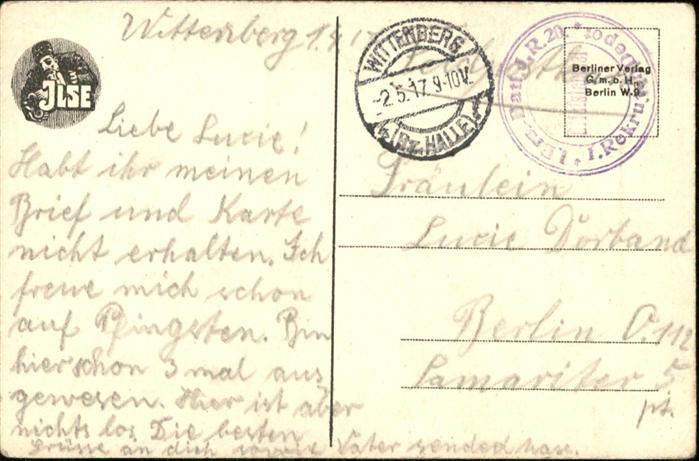 Wittenberg 1.4.17
JLSE
Liebe Lucie!
Habt ihr meinen
Brief und Karte
nicht erhalten. Ich
freue mich schon
auf Pfingsten. Bin
hier schon 3 mal aus
gewesen. Hier ist aber
nichts los Die besten
Grüsse an dich sowie Vater sended
WITTENBERG
-2.5.17. 9-10V.
(Bz. HALLE)
Ers. Batl. I.R. 20 * I. Rekru
Berliner Verlag
G.m.b.H.
Berlin W.9
Fräulein
Lucie Dorband
Berlin O
Samariter 5
pt.